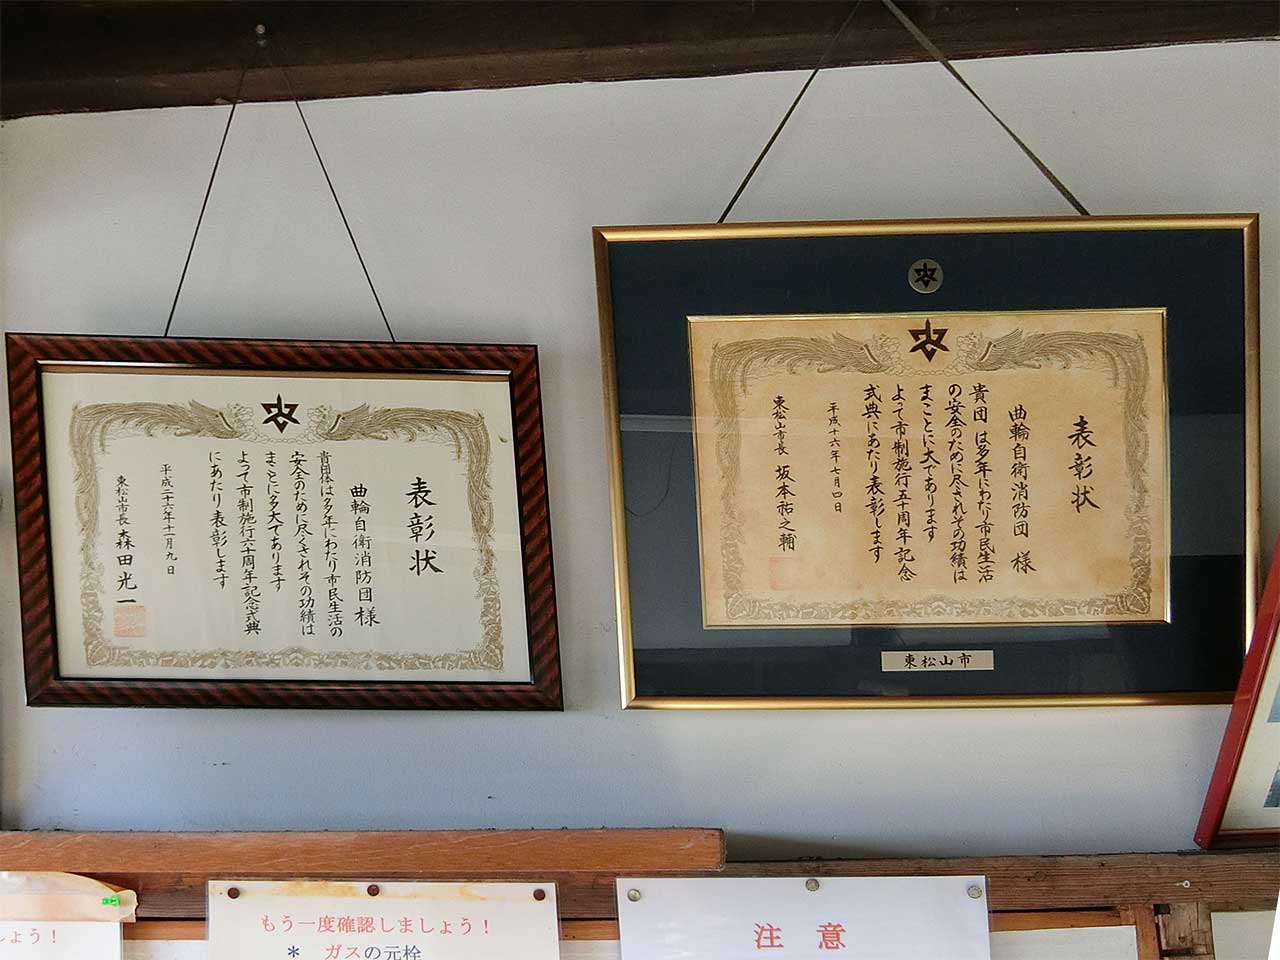 表彰状
曲輪自衛消防団 様
貴団体は多年にわたり市民生活の
安全のために尽くされその功績は
まことに多大であります
よって市制施行六十周年記念式典
にあたり表彰します
平成二十六年十一月九日
東松山市長 森田光一
表彰状
曲輪自衛消防団 様
貴団 は多年にわたり市民生活
の安全のために尽されその功績は
まことに大であります
よって市制施行五十周年記念
式典にあたり表彰します
平成十六年七月四日
東松山市長 坂本祐之輔
東松山市
しょう！
もう一度確認しましょう！
＊ ガスの元栓
注 意